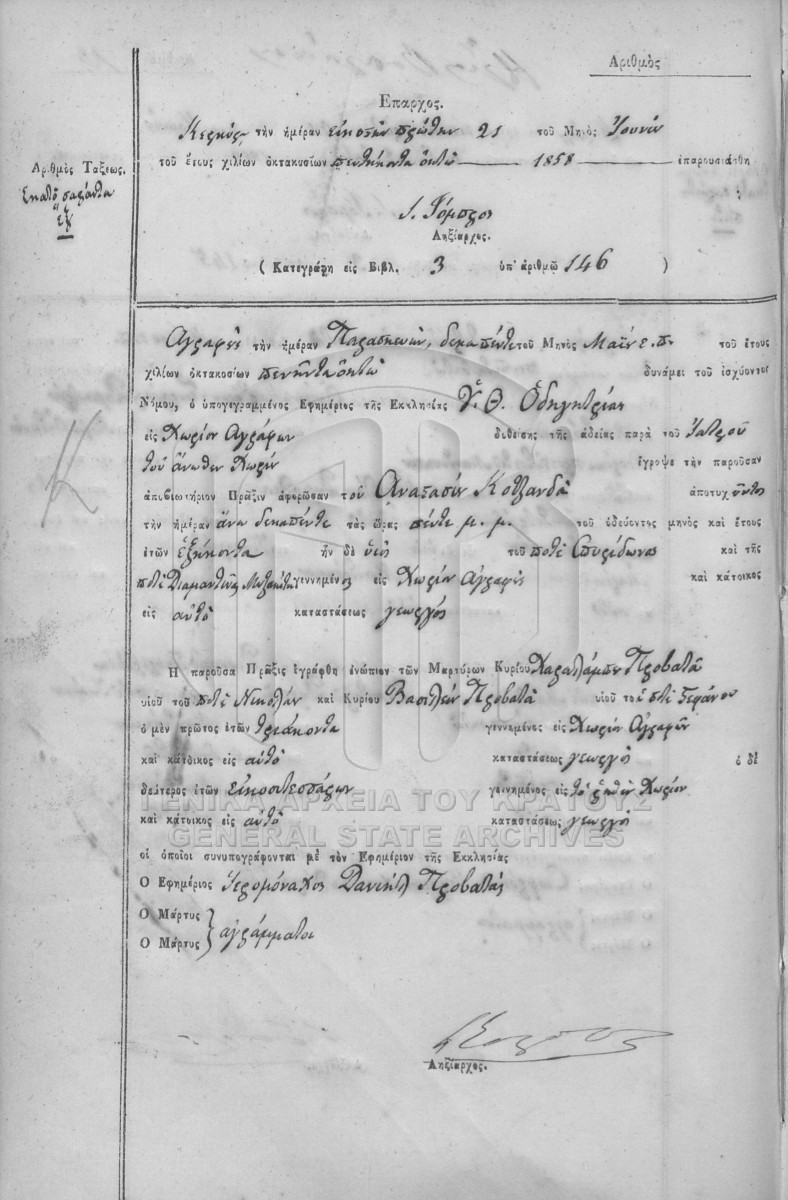 Ἀριθμὸς
Ἔπαρχος.
τὴν ἡμέραν εἰκοστὴν πρώτην 21 τοῦ Μηνὸς Ἰουνίου
τοῦ ἔτους χιλίων ὀκτακοσίων πεντήκοντα ὀκτὼ 1858 ἐπαρουσιάσθη
Ἀριθμὸς Τάξεως.
Ἑκατὸ σαράντα
ἕξ
Ληξίαρχος.
( Κατεγράφη εἰς Βιβλ. 3 ὑπ' ἀριθμῷ 146 )
τὴν ἡμέραν Παρασκευὴν, δεκαπέντε τοῦ Μηνὸς Μαΐου ε. π. τοῦ ἔτους
χιλίων ὀκτακοσίων πενῆντα ὀκτὼ δυνάμει τοῦ ἰσχύοντος
Νόμου, ὁ ὑπογεγραμμένος Ἐφημέριος τῆς Ἐκκλησίας Ὑ. Θ. Ὁδηγητρίας
εἰς Χωρίον Ἀγράφων δοθείσης τῆς ἀδείας παρὰ τοῦ Ἰατροῦ
τοῦ ἄνωθεν Χωρίου ἔγραψε τὴν παροῦσαν
ἀποβιωτήριον Πρᾶξιν ἀφορῶσαν τοῦ Ἀναστασίου ἀποτυχόντος
τὴν ἡμέραν ἄνω δεκαπέντε τὰς ὥρας πέντε μ. μ. τοῦ ὁδεύοντος μηνὸς καὶ ἔτους
ἐτῶν ἑξήκοντα ἦν δὲ υἱὸς τοῦ ποτὲ Σπυρίδωνος καὶ τῆς
ποτὲ Διαμαντίνας γεννημένος εἰς Χωρίον Ἀγραφοὺς καὶ κάτοικος
εἰς αὐτὸ καταστάσεως γεωργός
Ἡ παροῦσα Πρᾶξις ἐγράφθη ἐνώπιον τῶν Μαρτύρων Κυρίου Χαραλάμπου Προβατᾶ
υἱοῦ τοῦ ποτὲ Νικολάου καὶ Κυρίου Βασιλείου Προβατᾶ υἱοῦ τοῦ ποτὲ Στεφάνου
ὁ μὲν πρῶτος ἐτῶν τριάκοντα γεννημένος εἰς Χωρίον Ἀγραφῶν
καὶ κάτοικος εἰς αὐτὸ καταστάσεως γεωργὸς ὁ δὲ
δεύτερος ἐτῶν εἰκοσιτεσσάρων γεννημένος εἰς τὸ ῥηθὲν Χωρίον
καὶ κάτοικος εἰς αὐτὸ καταστάσεως γεωργὸς
ΓΕΝΙΚΑ ΑΡΧΕΙΑ ΤΟΥ ΚΡΑΤΟΥΣ
GENERAL STATE ARCHIVES
οἱ ὁποῖοι συνυπογράφονται μὲ τὸν Ἐφημέριον τῆς Ἐκκλησίας
Ὁ Ἐφημέριος Ἱερομόναχος Δανιὴλ Προβατᾶς
Ὁ Μάρτυς
Ὁ Μάρτυς } ἀγράμματοι
Ληξίαρχος.